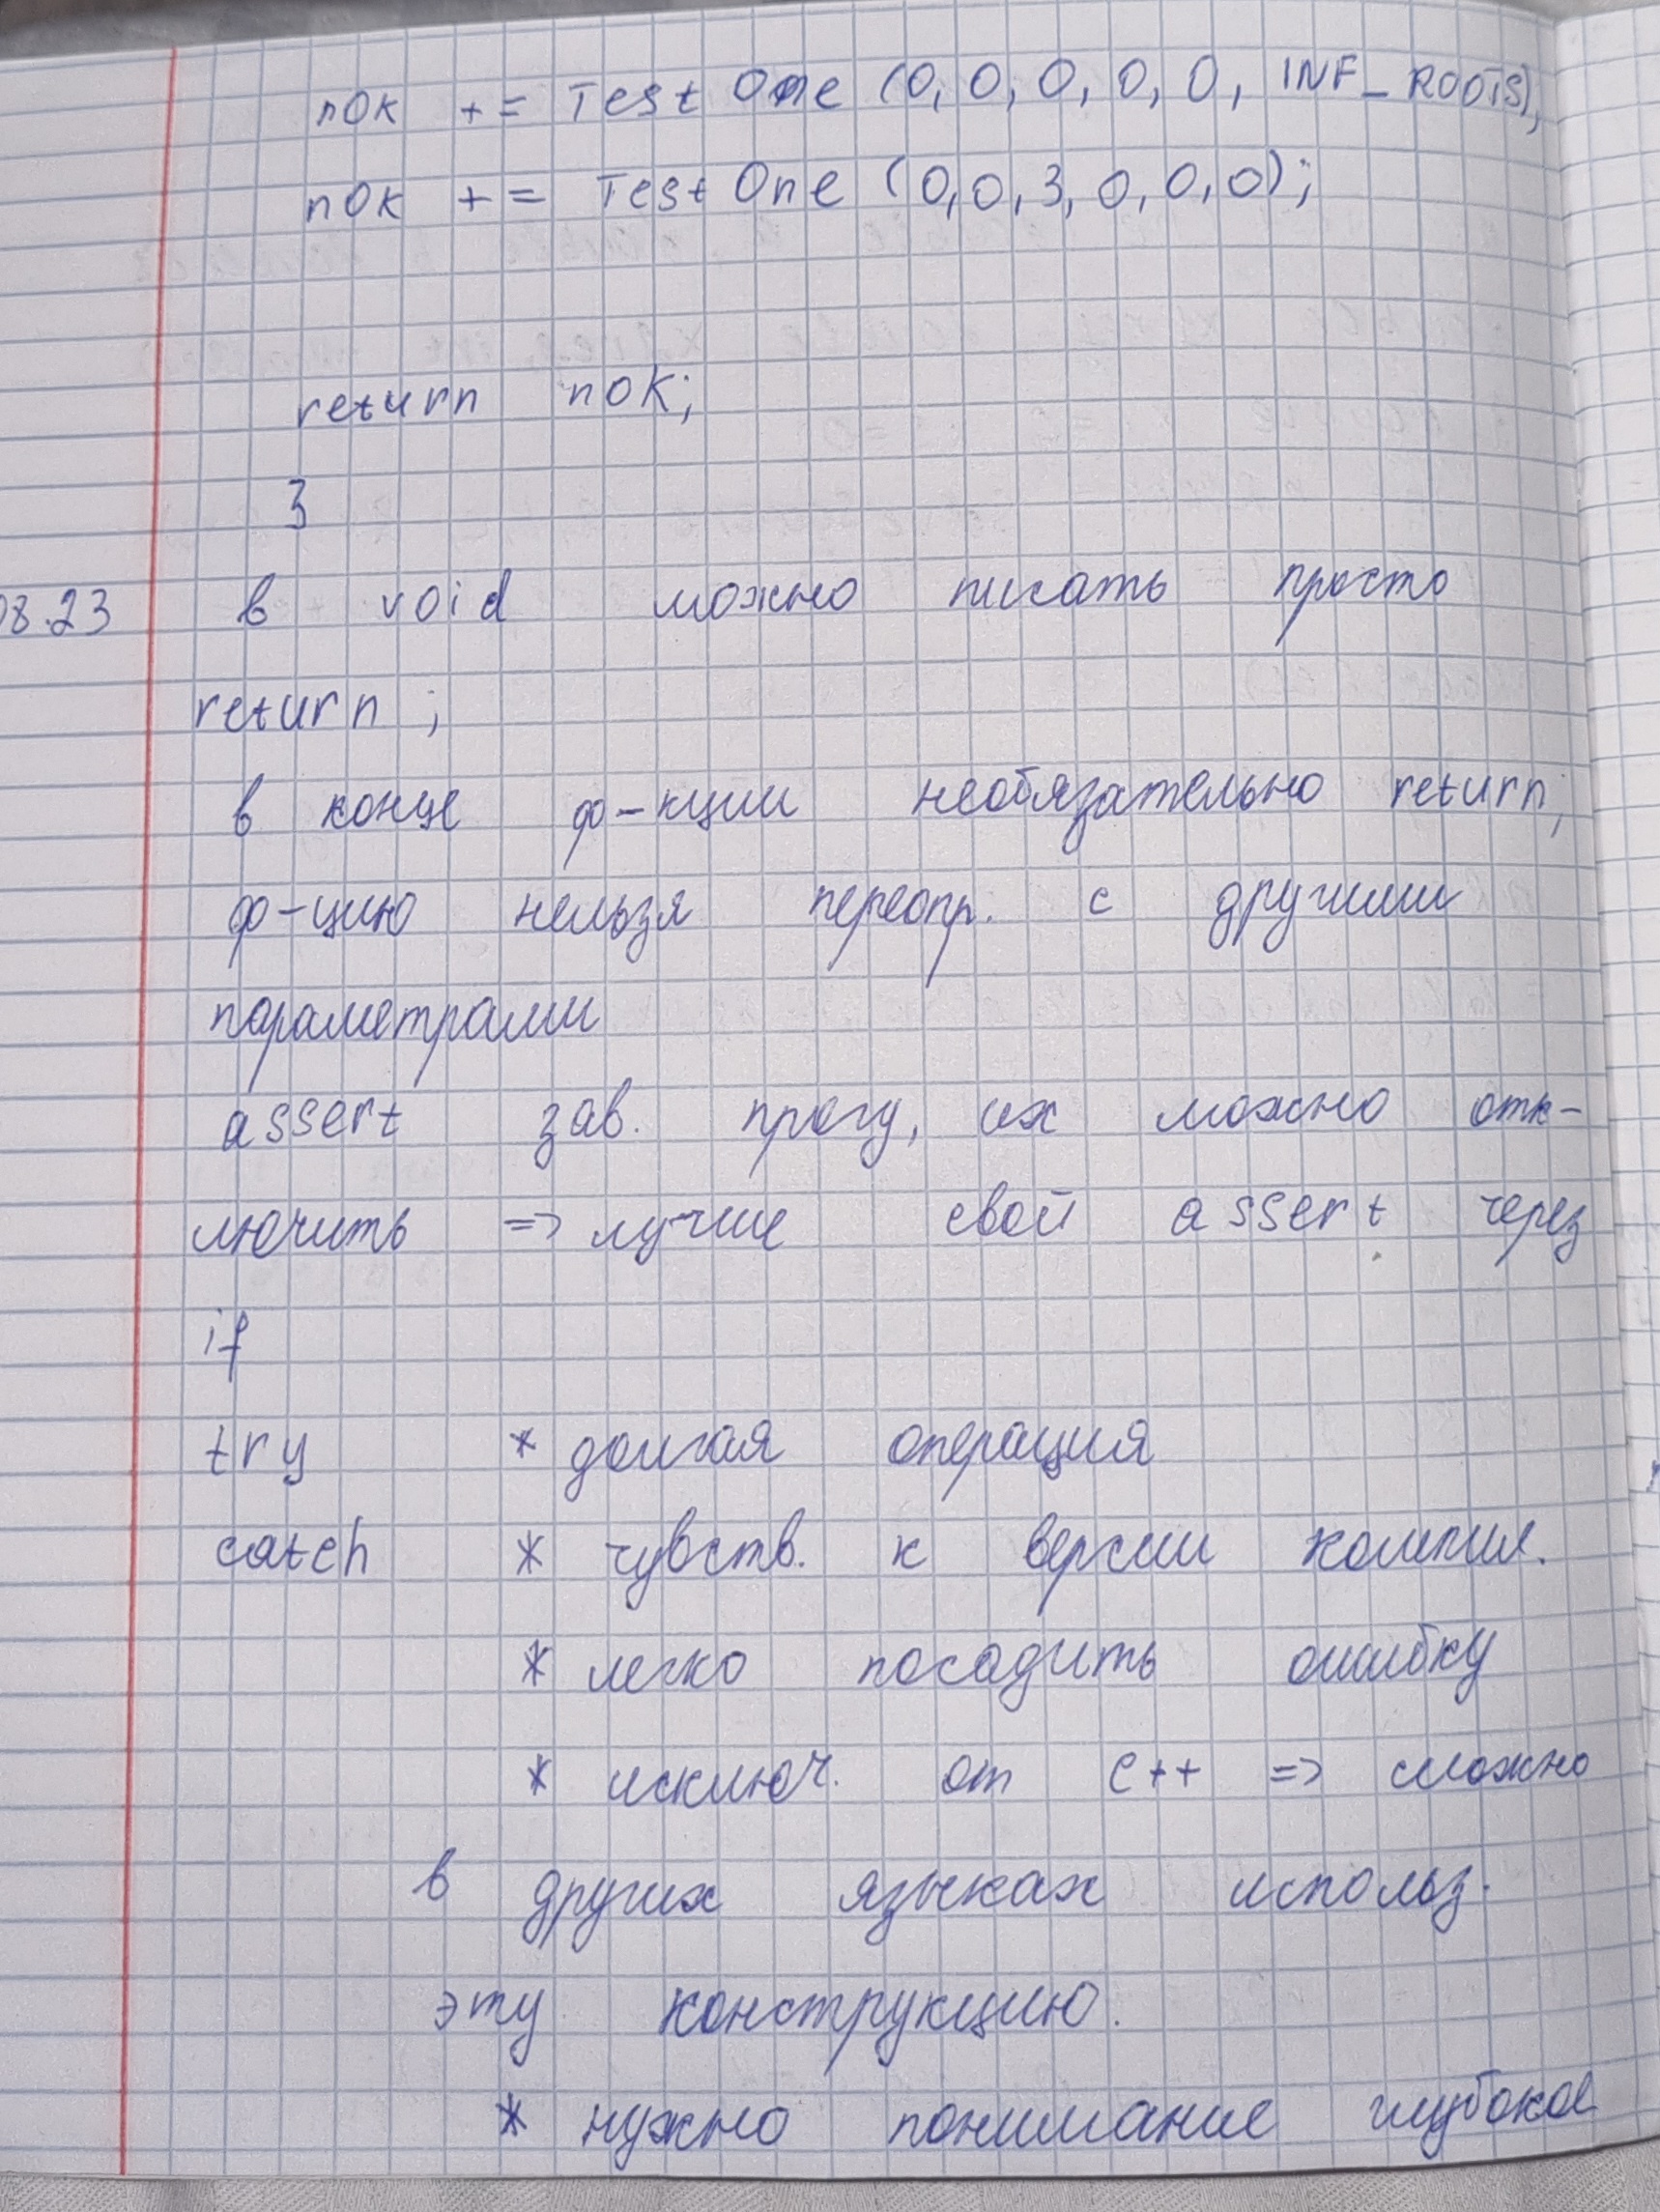 nOk += TestOne (0, 0, 0, 0, 0, INF_ROOTS);
nOk += TestOne (0,0,3,0,0,0);
return nOk;
}
08.23 в void можно писать просто
return ;
в конце ф-кции необязательно return;
ф-цию нельзя переопр. с другими
параметрами
assert зав. прогу, их можно отк-
лючить => лучше свой assert через
if
try * долгая операция
catch * чувств. к версии компил.
* легко посадить ошибку
* исключ. от C++ => сложно
в других языках использ.
эту конструкцию.
* нужно понимание глубокое